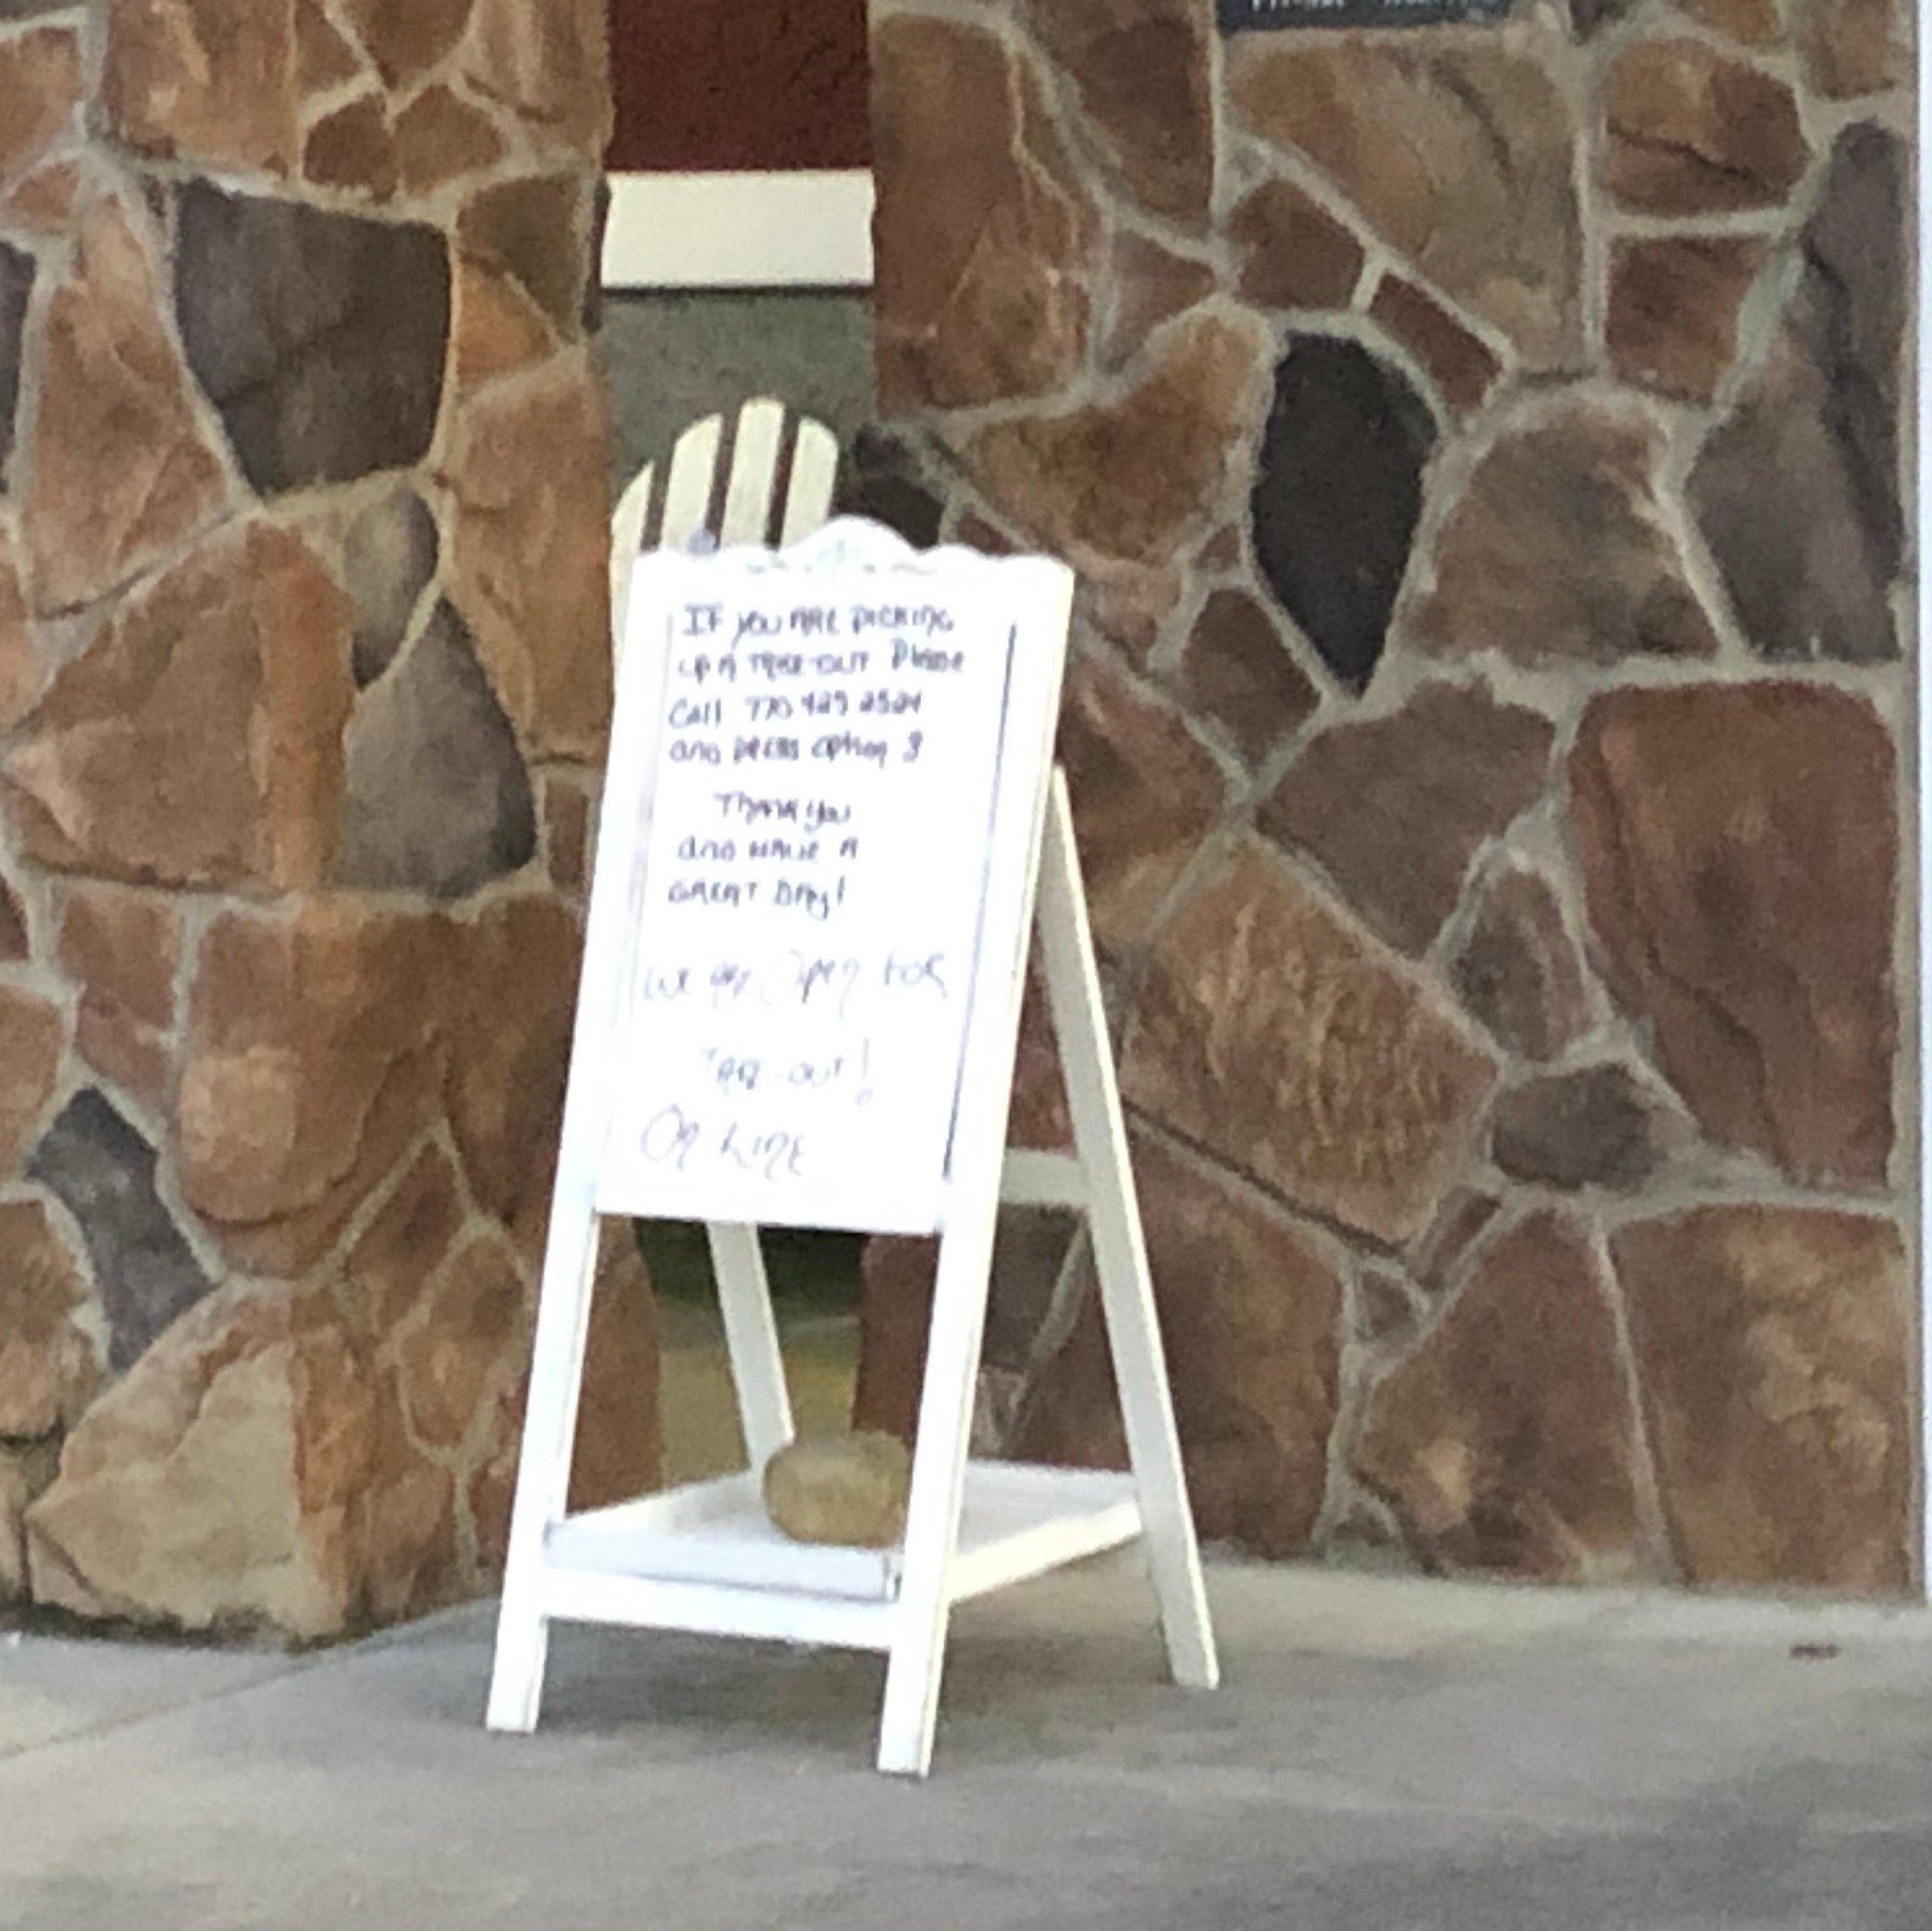 IF you ARE PICKING
UP A TAKE-OUT Please
Call 770 425 2524
and press option 3
Thank you
and HAVE A
GREAT DAy!
We are Open FOR
TAKE-OUT!
On LINE